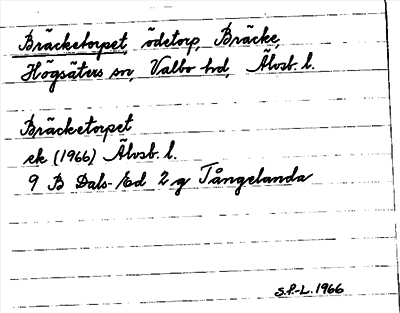 Bräcketorpet, ödetorp, Bräcke,
Högsäters sn, Valbo hd, Älvsb. l.
Bräcketorpet
ek (1966) Älvsb. l.
9 B Dals-Ed 2 g Tångelanda
S.P.-L. 1966